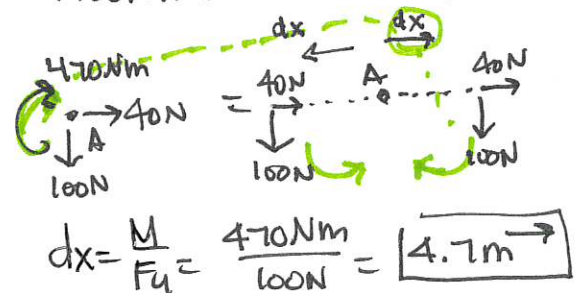 dx dx
470Nm
40N = 40N A 40N
A
100N 100N 100N
dx = M/Fy = 470Nm/100N = 4.7m →